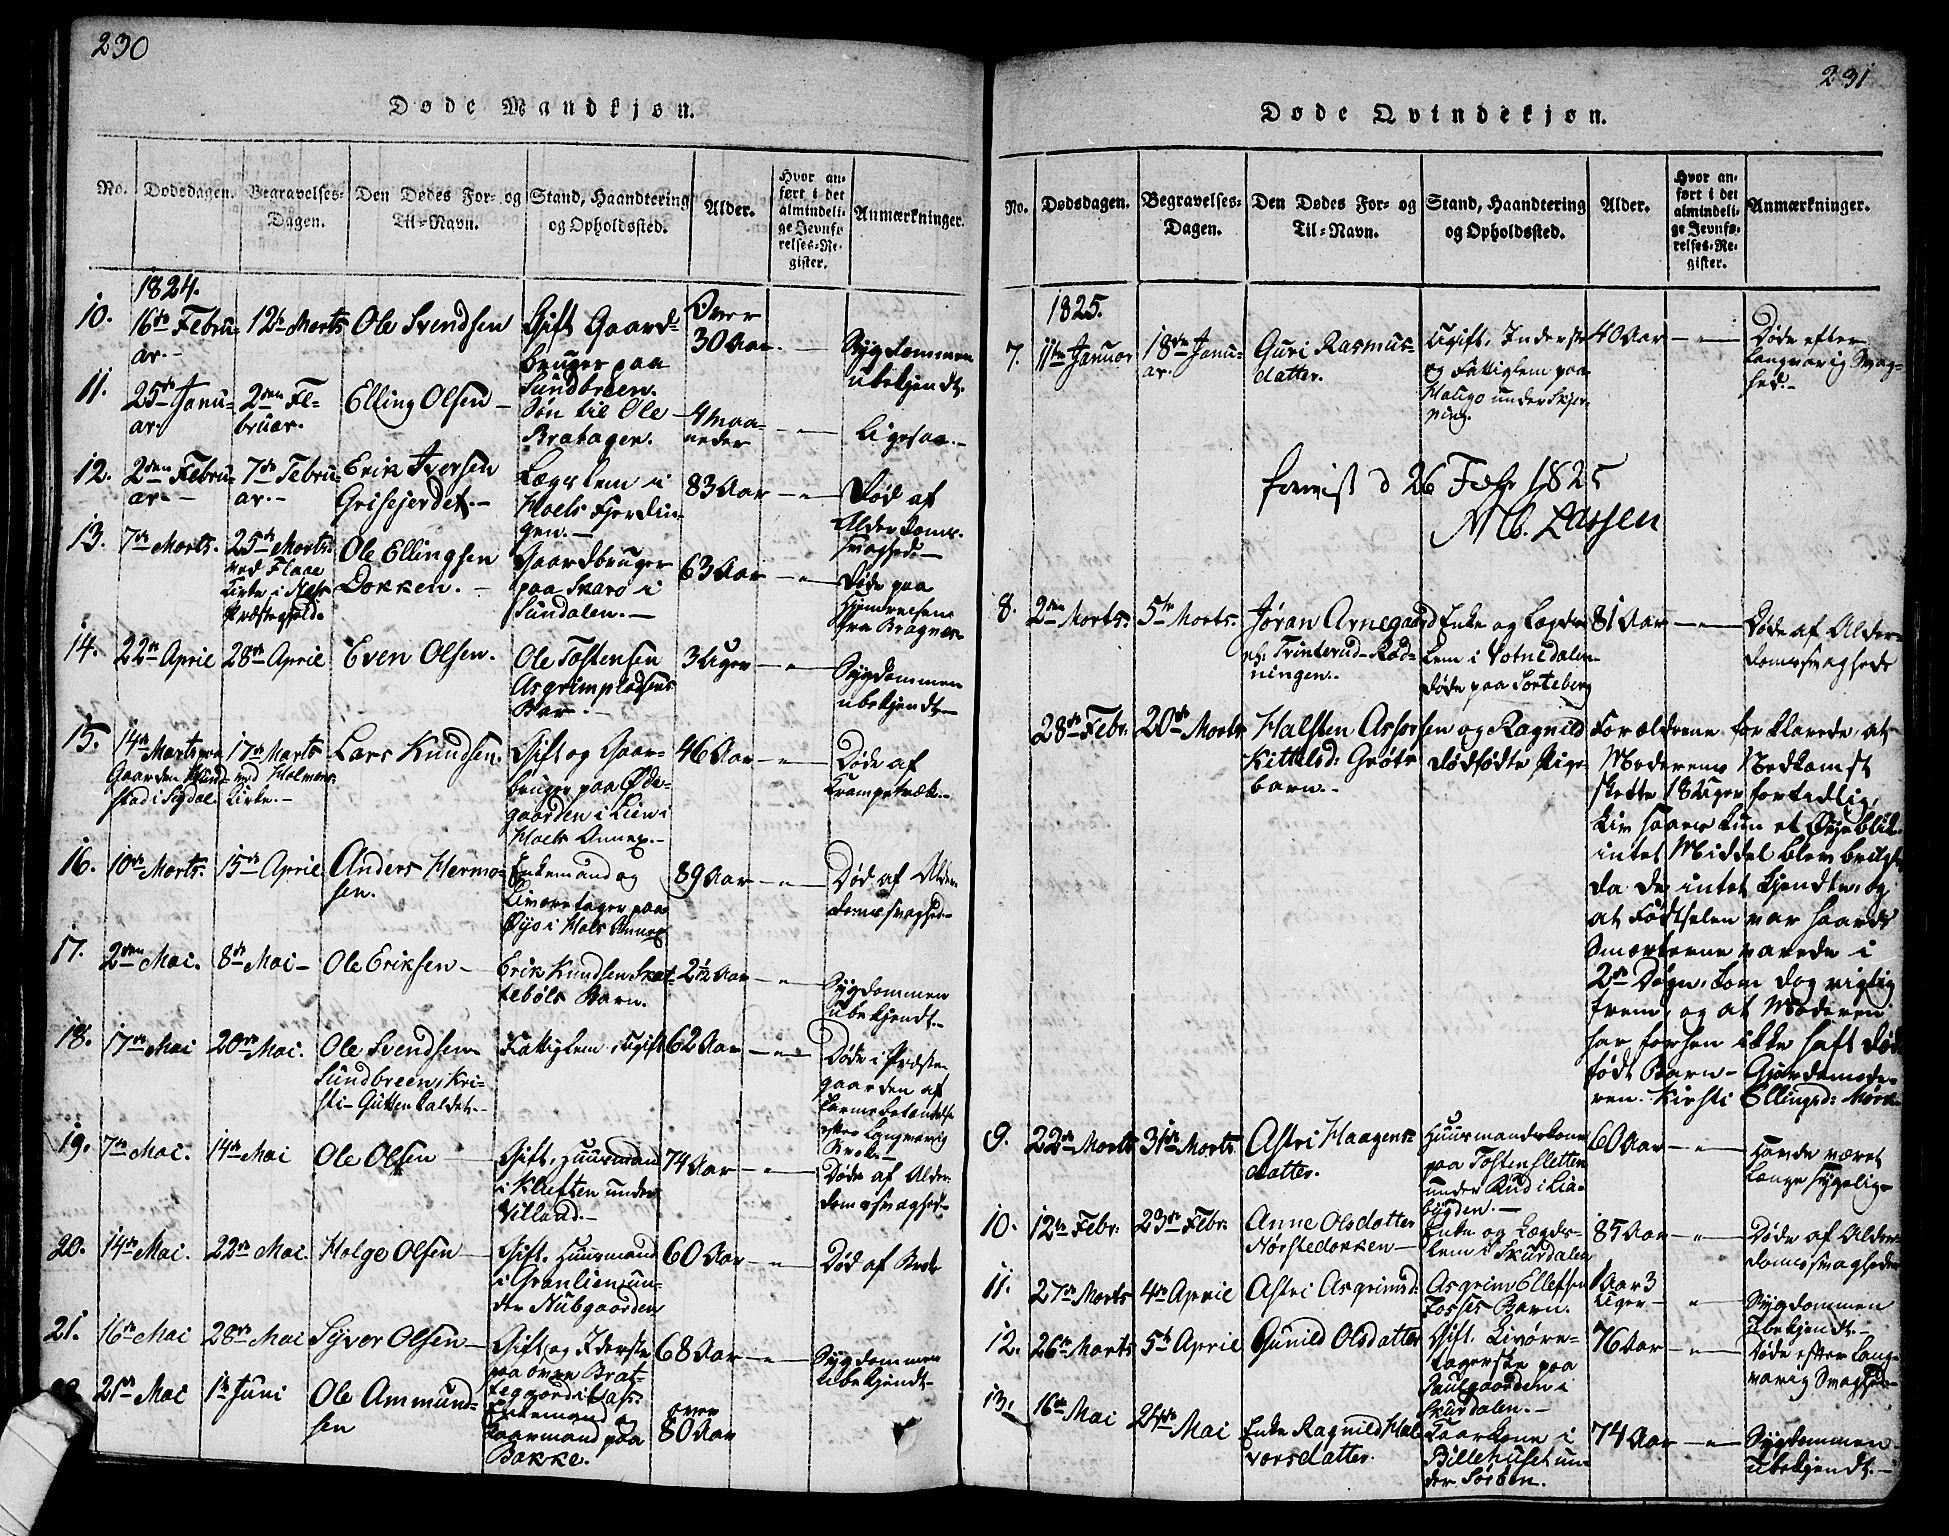 230
Døde Mandkjøn.
No.
Dødsdagen.
Begravelses-
Dagen.
Den Dødes For- og
Til-Navn.
Stand, Haandtering
og Opholdssted.
Alder.
Hvor an-
ført i det
almindeli-
ge Jevnfø-
relses-Re-
gister.
Anmærkninger.
1824.
10.
16de Febru-
ar.
12te Marts
Ole Svendsen
Gift Gaard-
bruger paa
Sundbreen.
Over
30 Aar.
Sygdommen
ubekjendt.
11.
25de Janu-
ar.
2den Fe-
bruar.
Elling Olsen
Søn til Ole
Bratagen.
4 Maa-
neder
Ligesaa.
12.
2den Febru-
ar.
7de Febru-
ar.
Erik Iversen
Grisejerdet.
Lægslem i
Hoels Fjerdin-
gen.
83 Aar
Død af
Alderdoms-
svaghed.
13.
7de Marts.
25de Marts
ved Flaae
Kirke i Næs
Præstegjeld.
Ole Ellingsen
Dokken.
Gaardbruger
paa Skarø i
Sundalen.
63 Aar
Døde paa
Hjemreisen
fra Bragnæs.
14.
22de April
28de April
Even Olsen.
Ole Tostensen
Asgrimpladsens
Bar.
3 Uger
Sygdommen
ubekjendt.
15.
14de Marts paa
Gaarden
stad i Sigdal.
17de Marts
ved Holmens
Kirke.
Lars Knudsen.
Gift og Gaar-
bruger paa Øde-
gaarden i Lien i
Hoels Annex.
46 Aar
Døde af
Krampetræk.
16.
10de Marts.
15de April
Anders Hermo-
sen.
Enkemand og
Livøretager paa
Øijo i Hols Annex
89 Aar
Død af Alder-
domssvaghed.
17.
2den Mai.
8de Mai
Ole Eriksen
Erik Knudsen Skat-
tebøls Barn.
2½ Aar
Sygdommen
ubekjendt.
18.
17de Mai
20de Mai.
Ole Svendsen
Sundbreen, Kri-
sti-Guttenkaldet.
Fattiglem, Ugift
62 Aar
Døde i Præste-
gaarden af
efter langvarig
19.
7de Mai.
14de Mai
Ole Olsen
Gift, Huusmand
i Kluften under
Villand.
74 Aar
Døde af Alder-
domssvaghed.
20.
14de Mai.
22de Mai.
Holge Olsen
Gift, Huusmand
i Grønlien un-
der Nubgaarden
60 Aar
Død af
21.
16de Mai
28de Mai
Syver Olsen
Gift og Inderste
paa øvre Brat-
tegaard i
68 Aar
Sygdommen
ubekjendt.
21de Mai
1te Juni
Ole Ammund-
sen
Enkemand og
Kaarmand paa
Bakke.
over
80 Aar
231
Døde Qvindekjøn.
No.
Dødsdagen.
Begravelses-
Dagen.
Den Dødes For- og
Til-Navn.
Stand, Haandtering
og Opholdssted.
Alder.
Hvor an-
ført i det
almindeli-
ge Jevnfø-
relses-Re-
gister.
Anmærkninger.
1825.
7.
11te Januar
18de Janu-
ar.
Guri Rasmus-
datter.
Ugift, Inderste
og Fattiglem paa
Haugo under Skjer-
ning.
40 Aar
Døde efter
langvarig Svag-
hed.
forevist d 26 Febr 1825
Lassen
8.
2den Marts.
5te Marts.
Jøran Arnegaard
Trinterud-Rød-
ningen.
Enke og Lægds-
lem i Votnedalen
døde paa Sorteberg
81 Aar
Døde af Alder-
domssvaghed
28de Febr.
20de Marts
Halsten Assorsen og Ragnild
Kittelsd: Grøts dødfødte Pige-
barn.
Forældrene forklarede, at
Moderens Nedkomst
skette 18 Uger fortidlig,
Liv saaes kun et Øyeblik
intet Middel blev brugt
da de intet kjendte, og
at Fødselen var haard
Smærterne varede i
2de Døgn, kom dog rigtig
frem, og at Moderen
har forhen ikke haft død-
født Barn. Gjordemode-
ren Kirsti Ellingsd: Mørk.
9.
22de Marts
31te Marts
Astri Haagens-
datter.
Huusmandskone
paa Tostensletten
under Rud i Lia-
bygden.
60 Aar
Havde været
længe sygelig.
10.
12te Febr.
23de Febr.
Anne Olsdatter
Nørstedokken
Enke og Lægds-
lem i Skurdalen
85 Aar
Døde af Alder-
domssvaghed
11.
27de Marts
4de April
Astri Asgrimsd:
Asgrim Ellefsen
Fosses Barn.
1 Aar 3
Uger
Sygdommen
ubekjendt.
12.
26de Marts
5te April
Gunild Olsdatter
Gift. Livøre-
tagerske paa
Paulgaarden i
Skurdalen.
76 Aar
Døde efter lang-
varig Svaghed.
13.
16de Mai
24de Mai
Enke Ragnild Hal-
vorsdatter.
Kaarkone i
Billehuset un-
der
74 Aar
Sygdommen
ubekjendt.